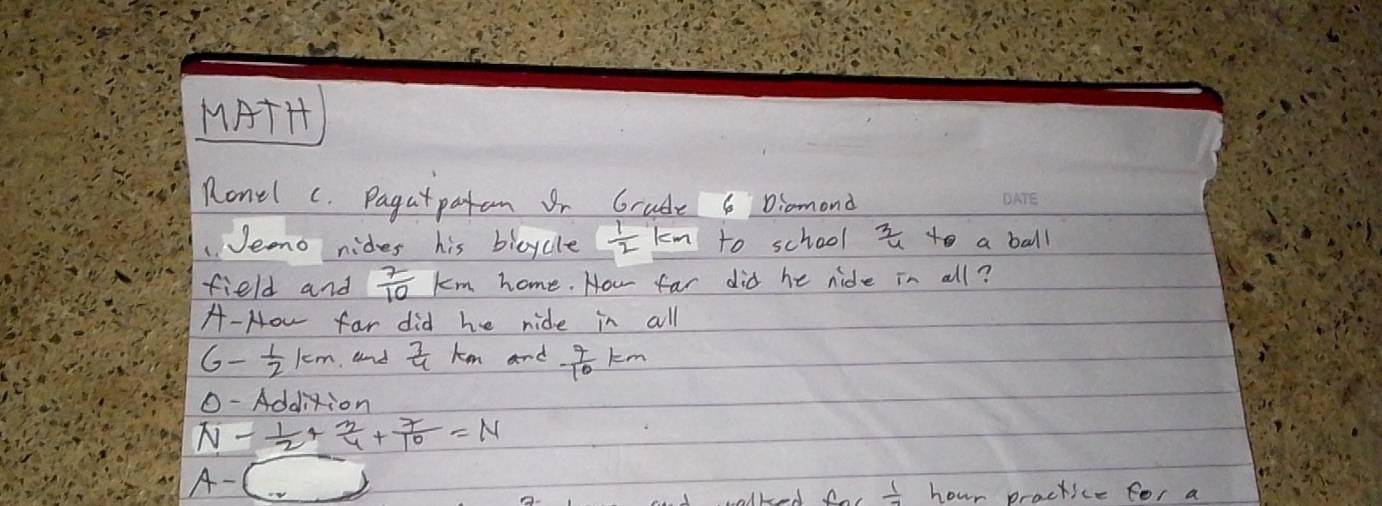 MATH
Ronel C. Pagatpatan Jr Grade 6 Diamond
DATE
1. Jeano rides his bicycle 1/2 km to school 3/4 to a ball
field and 7/10 km home. How far did he ride in all?
A-How far did he ride in all
G- 1/2 km. and 3/4 km and 7/10 km
O- Addition
N- 1/2 + 3/4 + 7/10 = N
A-
and walked for 1/2 hour practice for a